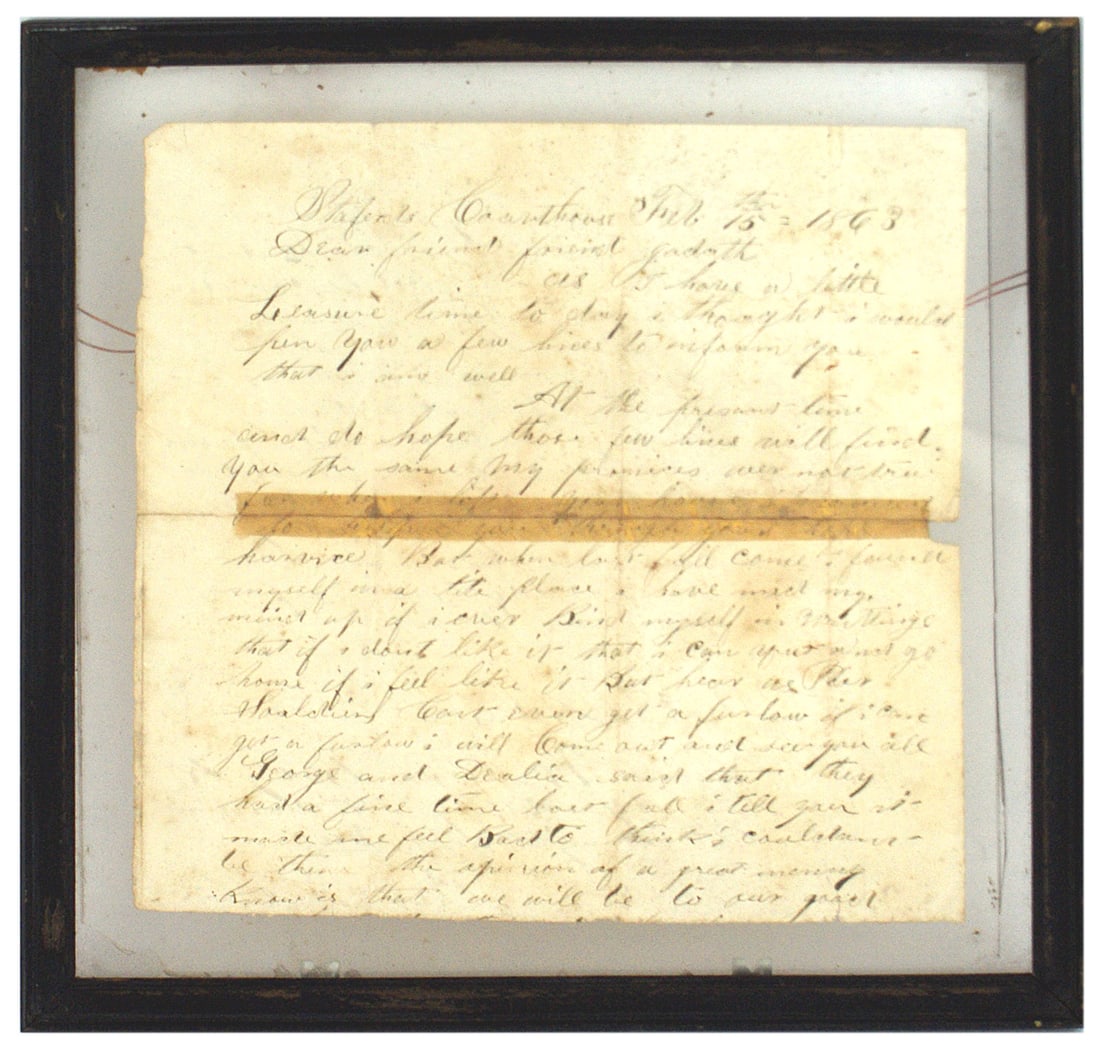 Courthouse Feb 15th = 1863
Dear friend friend
as I have a little
Leasure time to day i thought i would
pen you a few lines to inform you
that i am well
At the present time
and do hope those few lines will find
you the same My promices not
harvice But when last fall come i found
myself in a tite place i have mad my
mind up if i ever Bind myself in
that if i dont like it that i can and go
home if i feel like it But hear
Cant even get a furlow if i can
get a furlow i will Come out and see you all
George and Dealia said that they
had a fine time last fall i tell you it
made me feel Bad to think i
be there the opinion of a great menny
know is that we will be to our